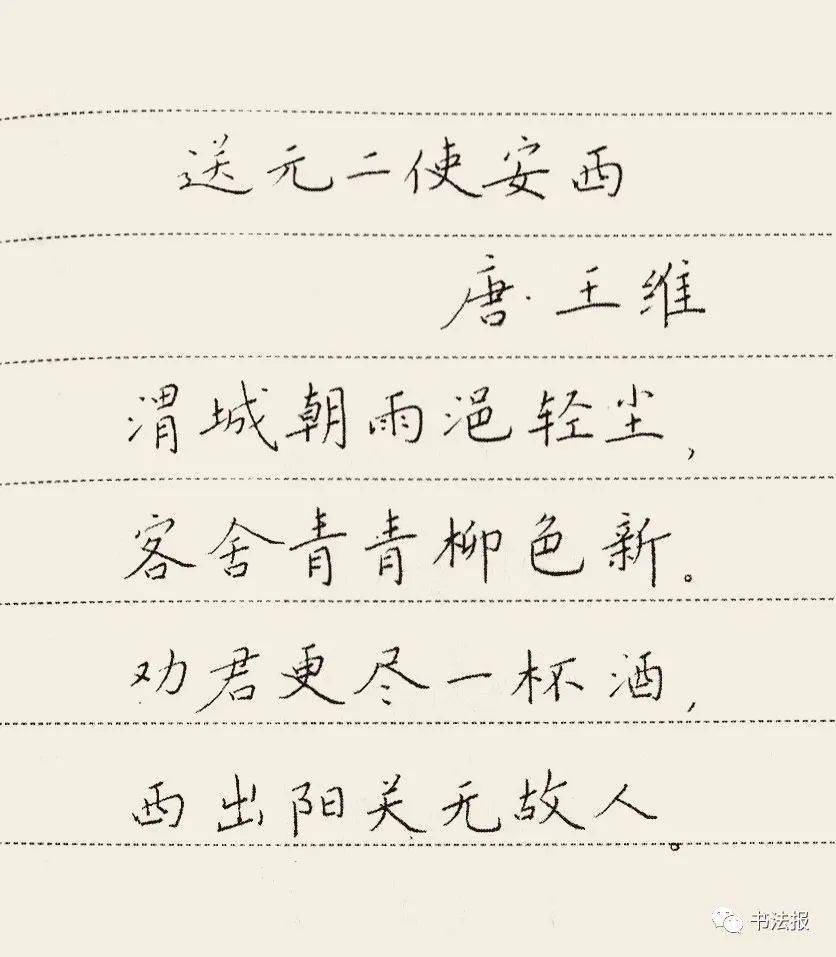 送元二使安西
唐·王维
渭城朝雨浥轻尘，
客舍青青柳色新。
劝君更尽一杯酒，
西出阳关无故人。
书法报